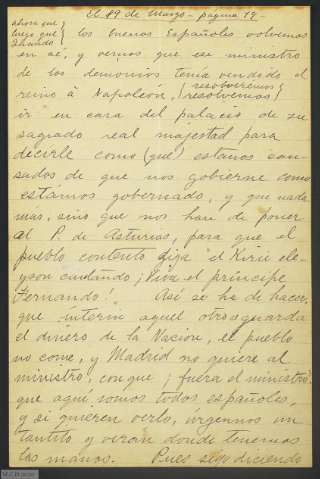 El 19 de Marzo - página 19 -
ahora que
luego que } los buenos Españoles volvemos
Cuando
en sé, y vemos que ese ministro
de los demonios tenía vendido el
reino á Napoleón, (resolveremos
(resolvemos)
ir en casa del palacio de su
sagrada real majestad para
decirle como (que) estamos can-
sados de que nos gobierne como
estamos gobernado, y que nada
mas, sino que nos han de poner
al P. de Asturias, para que el
pueblo contento diga "el Kirie ele-
yson cantando ¡Viva el príncipe
Fernando!". Así se ha de hacer,
que interin aquel otro se guarda
el dinero de la Nación, el pueblo
no come, y Madrid no quiere al
ministro, con que ¡fuera el ministro!
que aquí somos todos españoles,
y si quieren verlo, úrgennos un
tantito y verán donde tenemos
las manos. Pues sigo diciendo